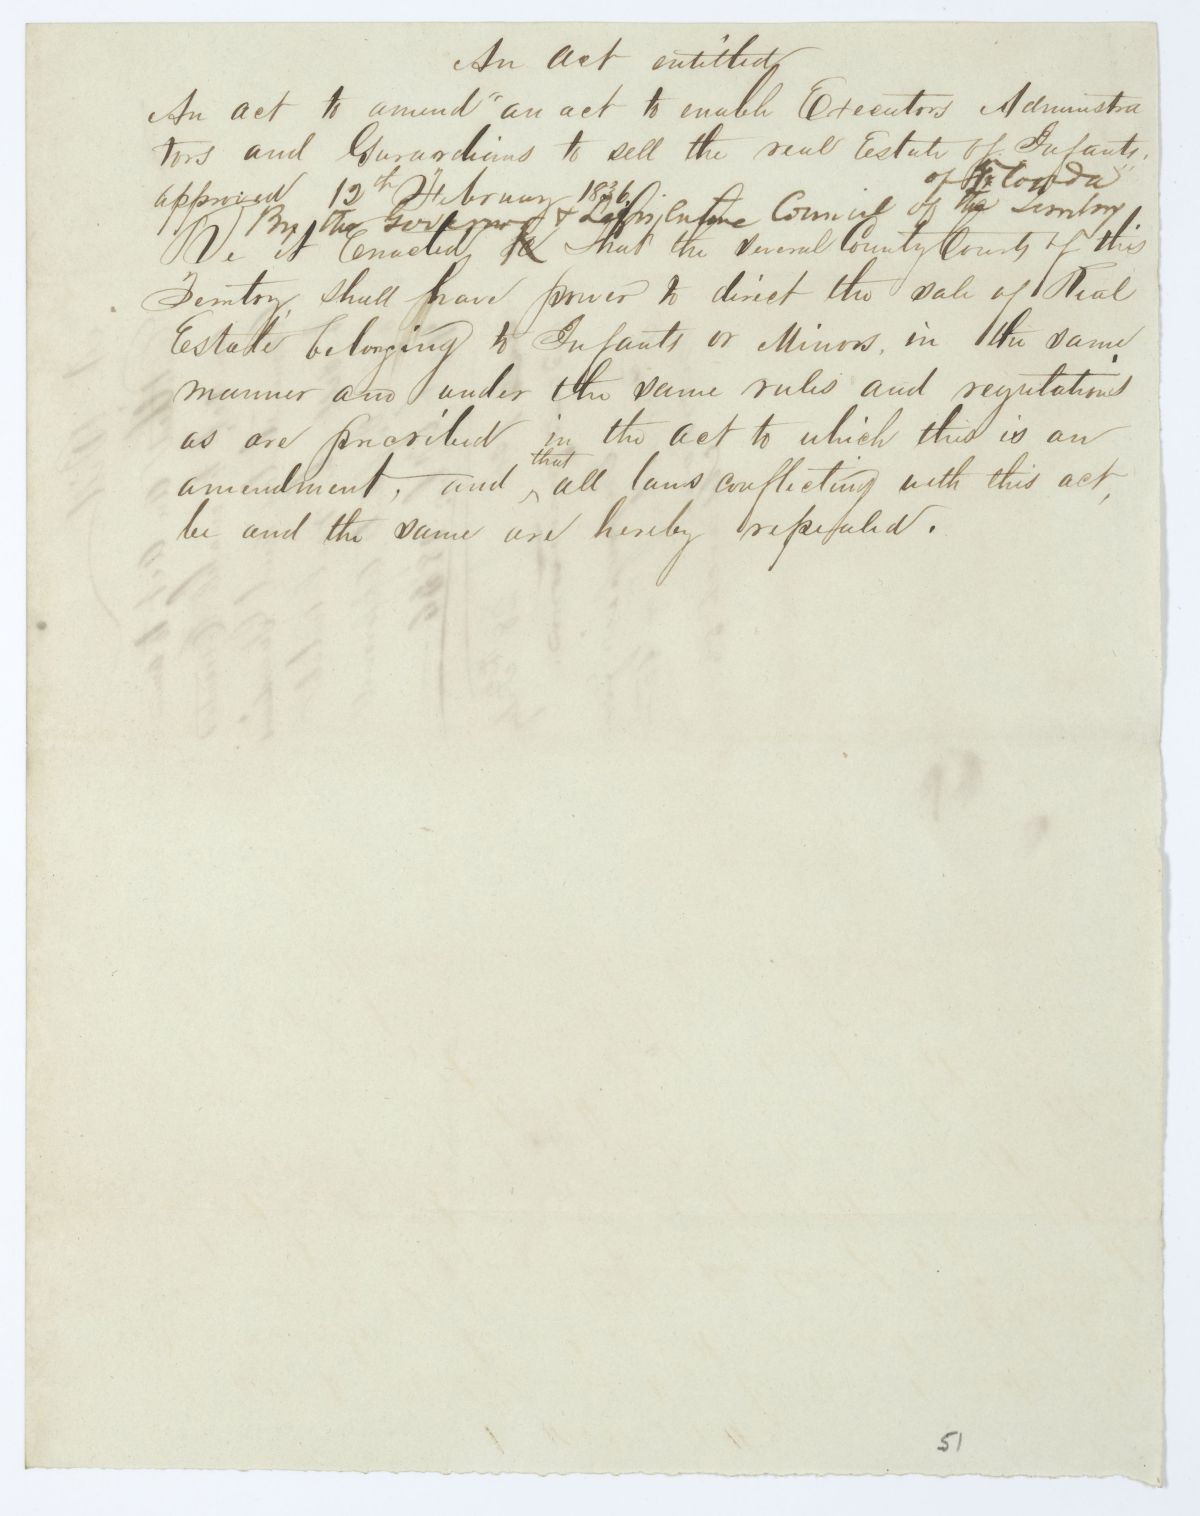 An Act entitled
An act to amend "an act to enable Executors Administra
tors and Guardians to sell the real Estate of Infants,
approved 12th February 1836"
By the Governor & Legislative Council of the Territory
of Florida
Be it Enacted, That the several County Courts of this
Territory, shall have power to direct the sale of Real
Estate belonging to Infants or Minors, in the same
manner and under the same rules and regulations
as are prescribed in the act to which this is an
amendment, and that all laws conflicting with this act,
be and the same are hereby repealed.
51